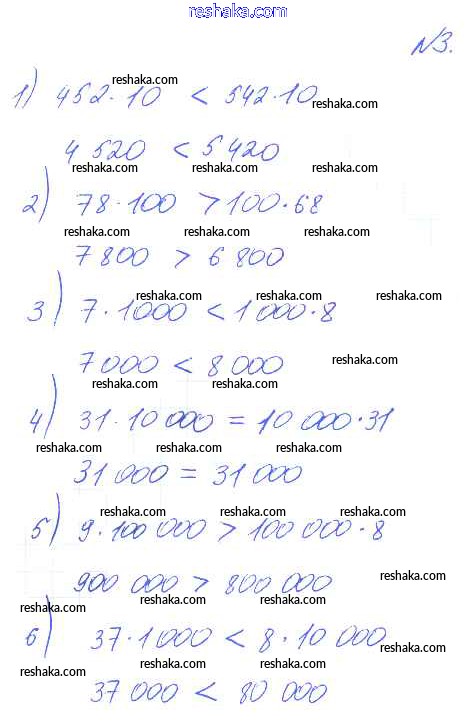 reshaka.com
№3.
reshaka.com
1) 452·10 < 542·10
reshaka.com
4 520 < 5 420
reshaka.com reshaka.com
2) 78·100 > 100·68
reshaka.com reshaka.com reshaka.com
7 800 > 6 800
reshaka.com reshaka.com reshaka.com
3) 7·1000 < 1 000·8
7 000 < 8 000
reshaka.com
reshaka.com reshaka.com
4) 31·10 000 = 10 000·31
reshaka.com reshaka.com reshaka.com
31 000 = 31 000
reshaka.com reshaka.com reshaka.com
5) 9·100 000 > 100 000·8
900 000 > 800 000
reshaka.com
reshaka.com reshaka.com reshaka.com
6) 37·1000 < 8·10 000
reshaka.com
reshaka.com reshaka.com reshaka.com
37 000 < 80 000